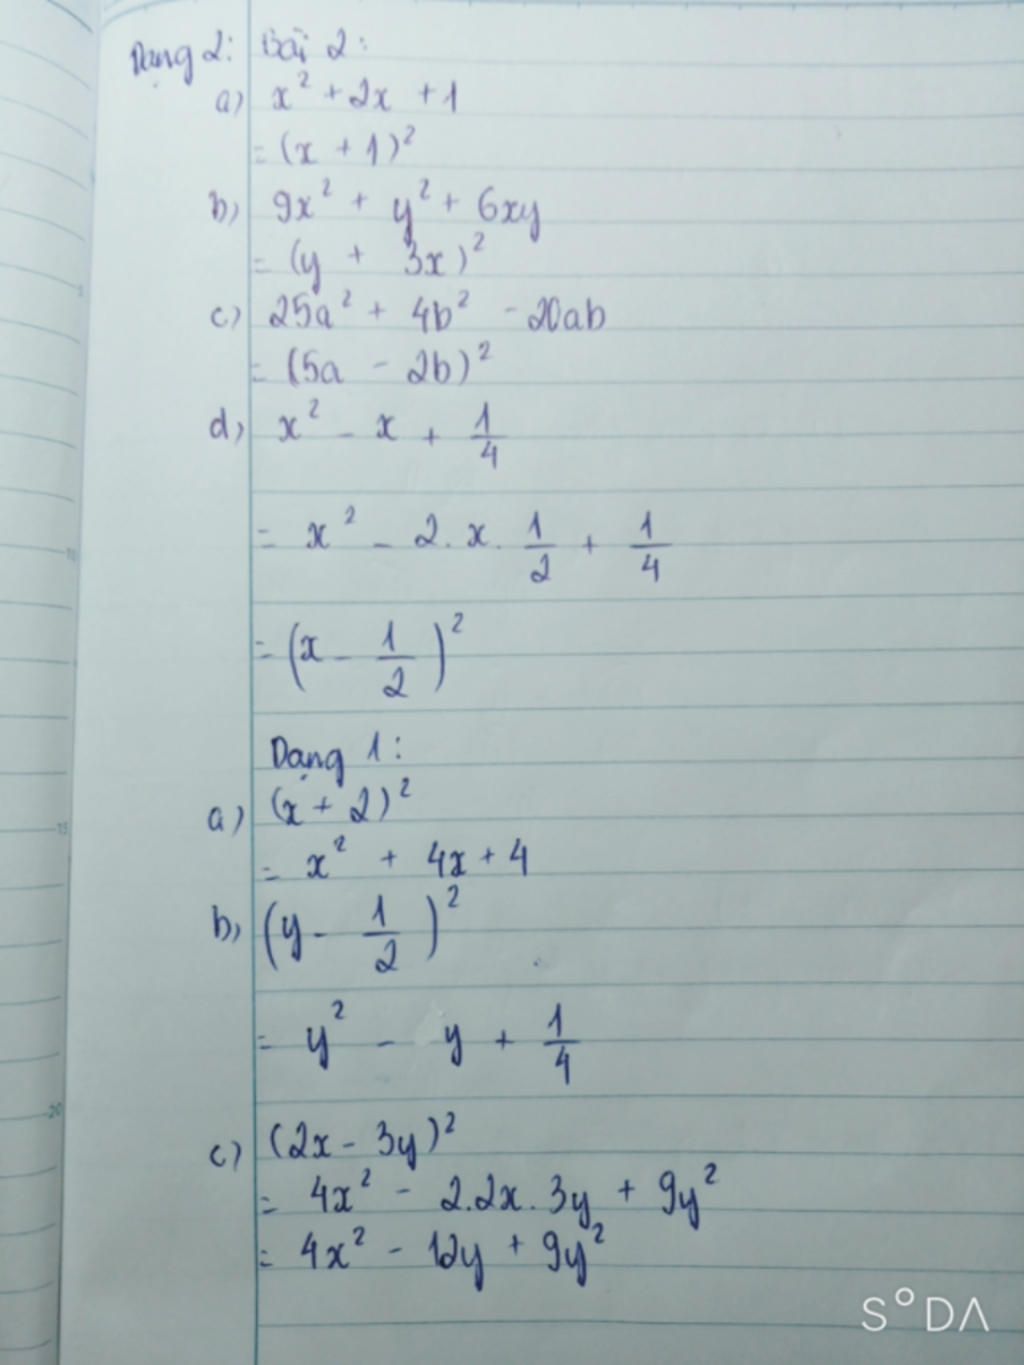 Dạng 2: Bài 2:
a) x² + 2x + 1
= (x + 1)²
b) 9x² + y² + 6xy
= (y + 3x)²
c) 25a² + 4b² - 20ab
= (5a - 2b)²
d) x² - x + 1/4
= x² - 2. x. 1/2 + 1/4
= (x - 1/2)²
Dạng 1:
a) (x + 2)²
= x² + 4x + 4
b) (y - 1/2)²
= y² - y + 1/4
c) (2x - 3y)²
= 4x² - 2.2x.3y + 9y²
= 4x² - 12y + 9y²
5
10
15
20
SODA